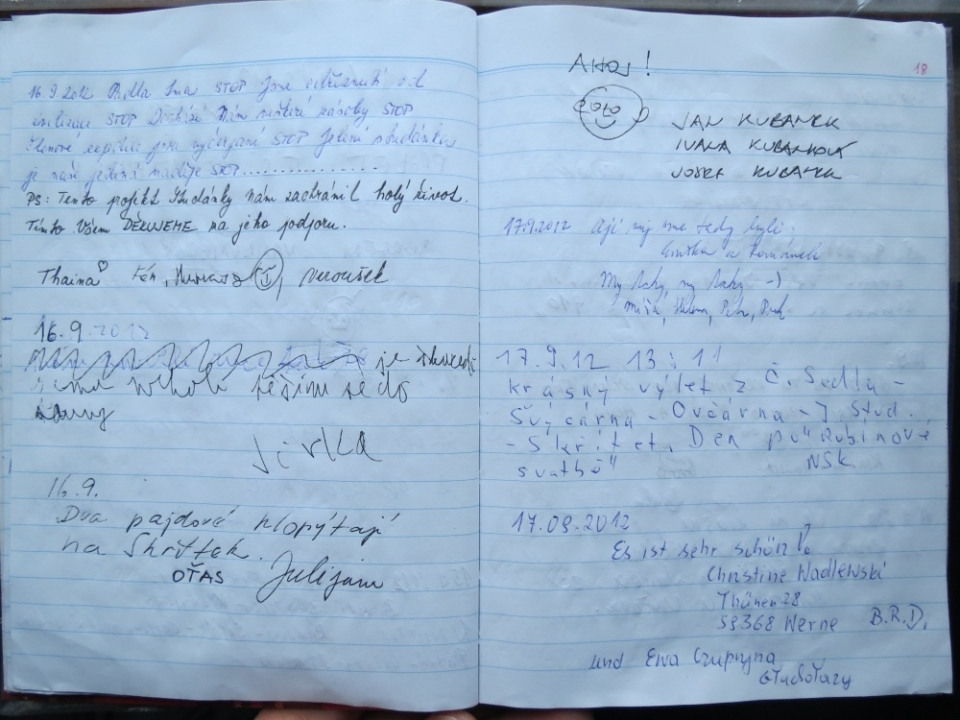 16.9.2012 STOP Jsme odříznuti od
civilizace STOP Dochází Nám zásoby STOP
Členové expedice jsou vyčerpáni STOP Jelení studánka
je naše jediná naděje STOP................
PS: Tento projekt Studánky nám zachránil holý život.
Tímto Všem DĚKUJEME na jeho podporu.
Thaina
Veroušek
16.9.2012
je škaredě
zima těšíme se do
Jirka
16.9.
Dva pajdové klopýtají
na Skřítek.
OŤAS Julijam
18
AHOJ!
JAN KUBANEK
IVANA KUBANKOVÁ
JOSEF KUBANEK
17.9.2012 Ají my sme tedy byli.
a
My taky, my taky :-)
17.9.12 13:11
krásný výlet z Č. Sedla -
Švýcárna - Ovčárna - J. Stud.
- Skřítek. Den po "Rubínové
svatbě" NSK
17.09.2012
Es ist sehr schön!
Christine Wadlewski
Thünen 28
59368 Werne B.R.D.
und Ewa Czupryna
Głuchołazy